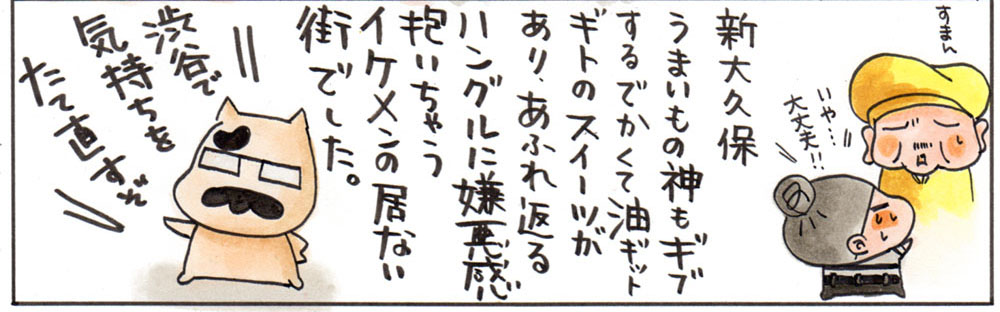 すまん
いや…
大丈夫!!
新大久保
うまいもの神もギブ
するでかくて油ギット
ギトのスイーツが
あり、あふれ返る
ハングルに嫌悪感
抱いちゃう
イケメンの居ない
街でした。
渋谷で
気持ちを
たて直すぜ